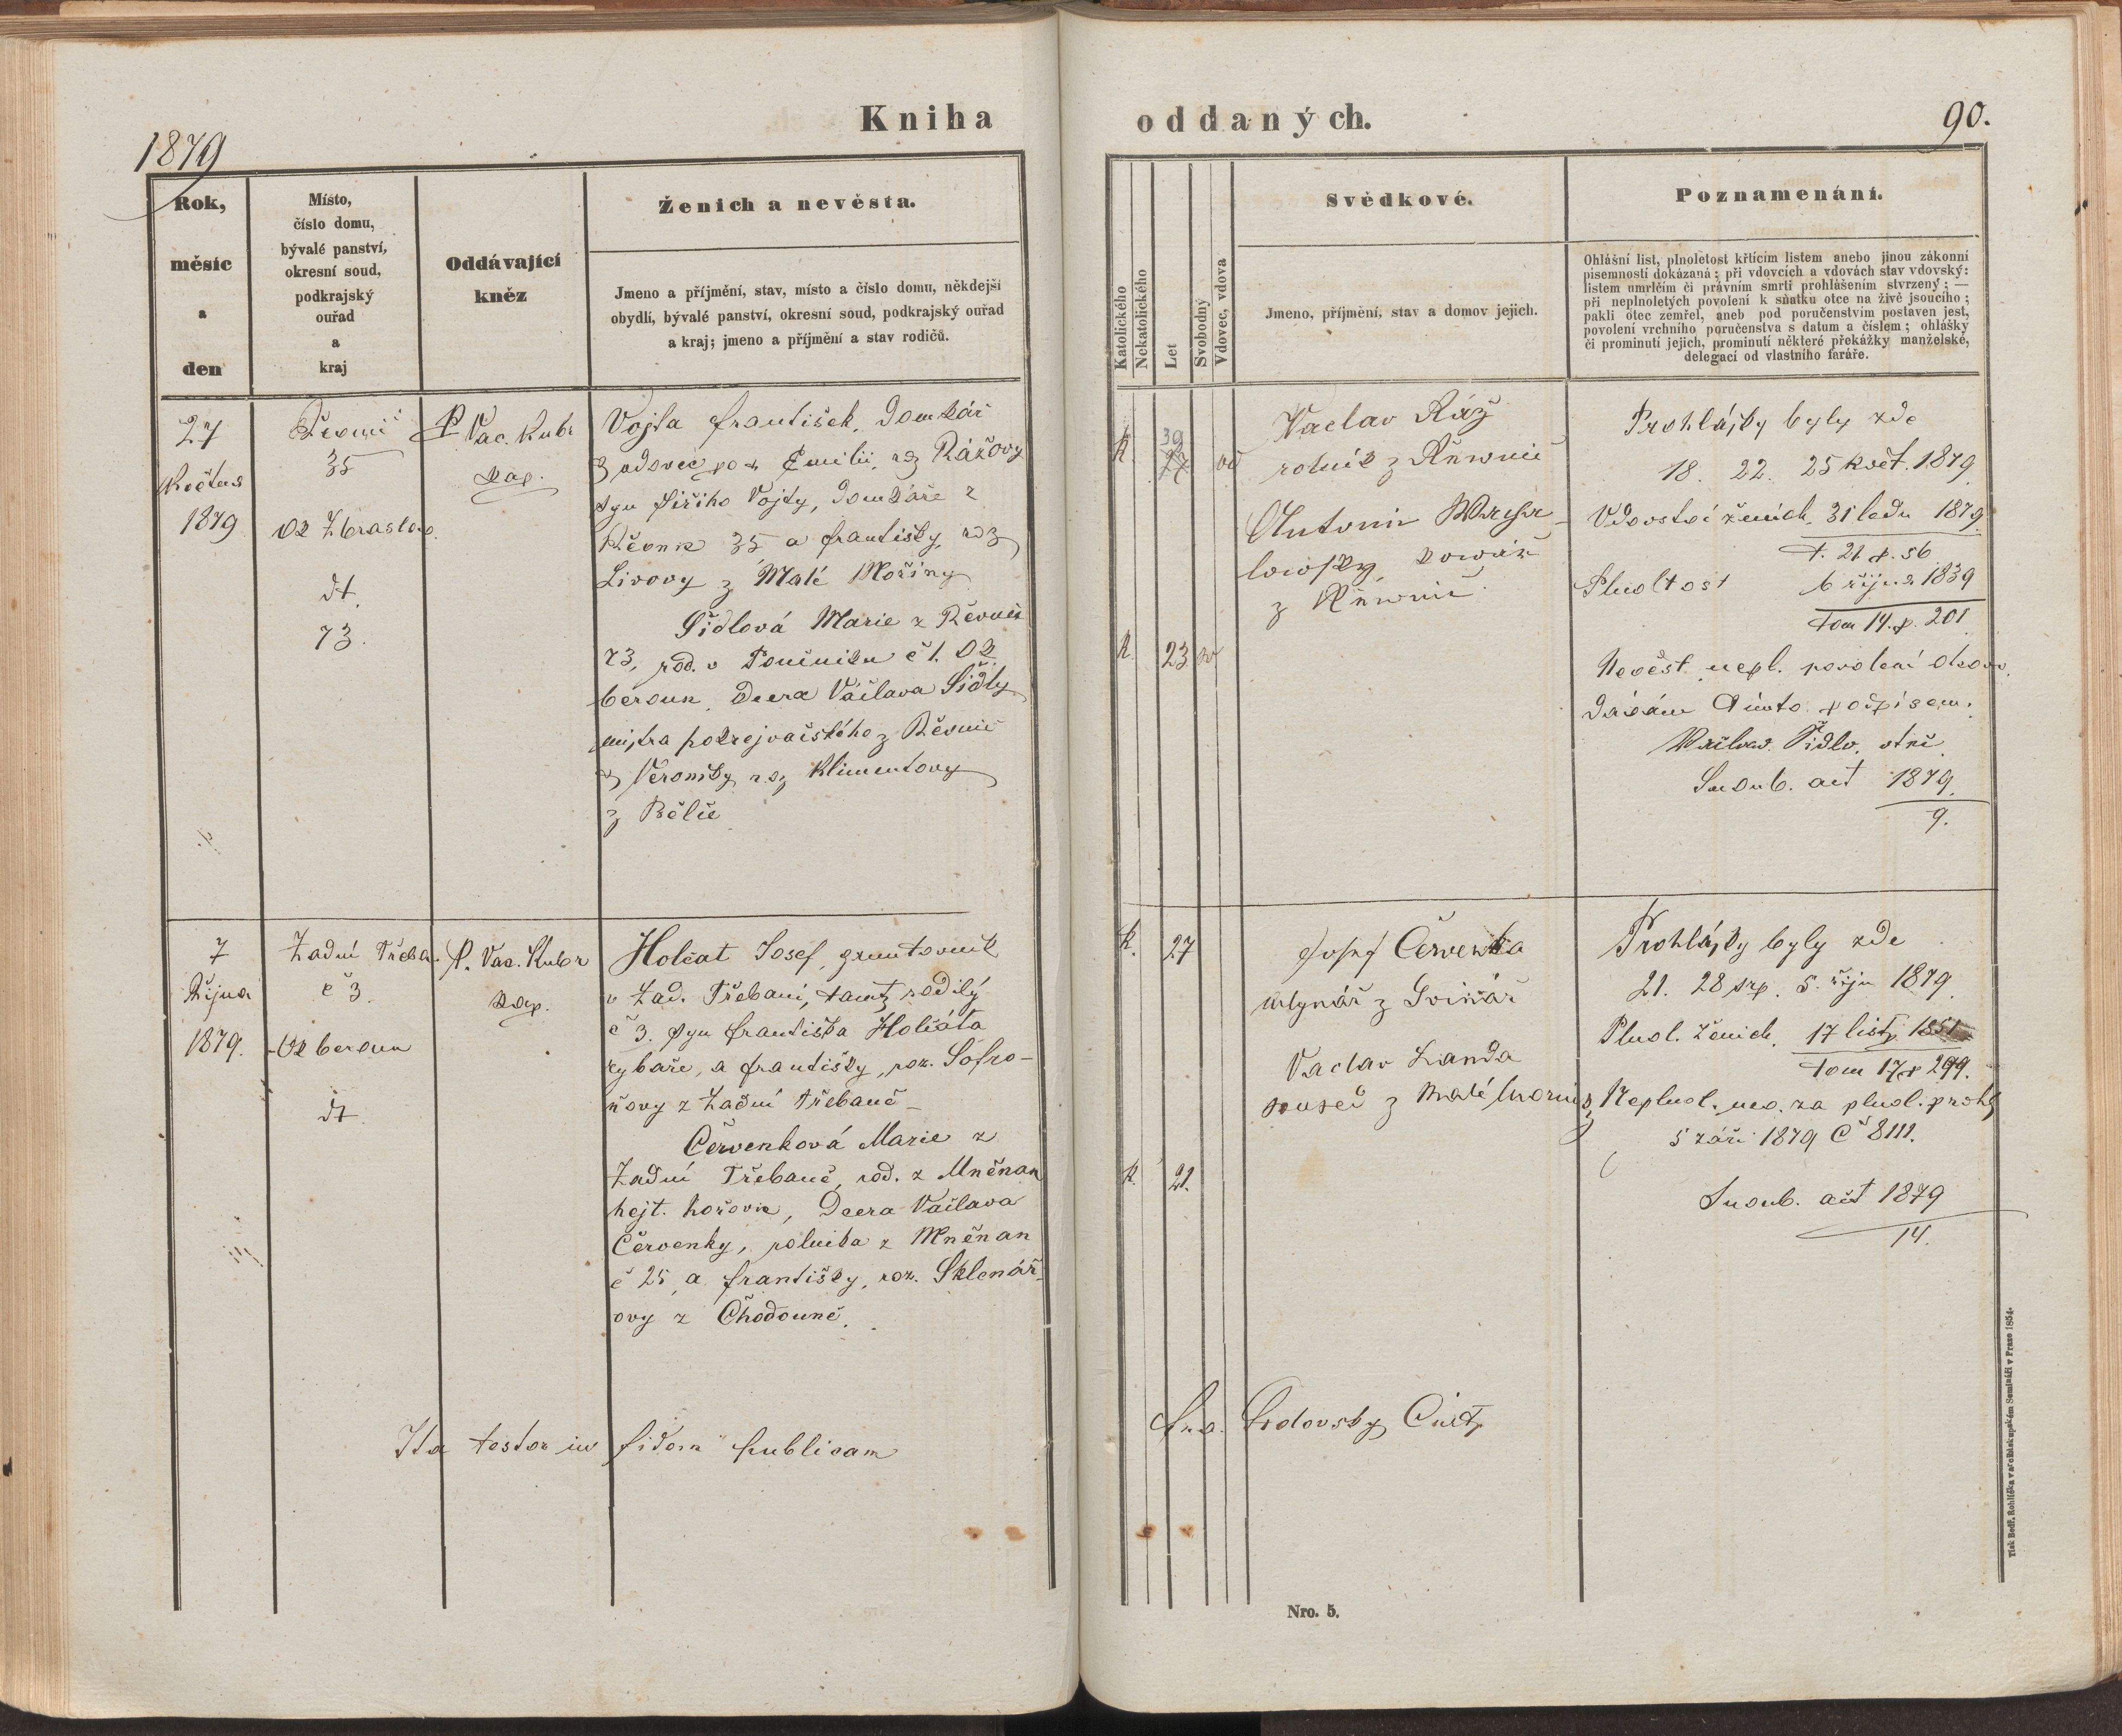 Kniha oddaných.
1879
90.
Rok,
měsíc
a
den
Místo,
číslo domu,
bývalé panství,
okresní soud,
podkrajský
ouřad
a
kraj
Oddávající
kněz
Ženich a nevěsta.
Jmeno a příjmění, stav, místo a číslo domu, někdejší
obydlí, bývalé panství, okresní soud, podkrajský ouřad
a kraj; jmeno a příjmění a stav rodičů.
Katolického
Nekatolického
Let
Svobodný
Vdovec, vdova
Svědkové.
Jmeno, příjmění, stav a domov jejich.
Poznamenání.
Ohlášní list, plnoletost křtícím listem anebo jinou zákonní
písemností dokázaná; při vdovcích a vdovách stav vdovský:
listem umrlčím či právním smrti prohlášením stvrzený; —
při neplnoletých povolení k sňatku otce na živě jsoucího;
pakli otec zemřel, aneb pod poručenstvím postaven jest,
povolení vrchního poručenstva s datum a číslem; ohlášky
či prominutí jejich, prominutí některé překážky manželské,
delegací od vlastního faráře.
27
Května
1879
Řevnic
35
Ok Zbraslav.
dt.
73.
P Vac. Kubr
kap.
Vojta František, domkář
vdovec po + Emilii, roz Rážovy
syn Jiřího Vojty, domkáře z
Řevnic 35 a Františky, roz
Livovy z Malé Mořiny
Šídlová Marie z Řevnic
73, rod. v č 1. Ok
beroun, dcera Václava Šídly
mistra pokrejvačského z Řevnic
z Veroniky roz Klimentovy
z Bělče
K.
39
vd
K.
23
sv
Vaclav Ráž
rolník z Řewnic
Antonin
kowář
z Řewnic
Prohlášky byly zde
18. 22. 25 květ. 1879
Vdovství ženich. 31 ledu 1879
t. 21 p. 56
Plnoltost 6 října 1839
tom 14. p. 201
Nevěst. nepl. povolení otcov.
dávám tímto podpisem.
Václav Šídlo, otec
Snoub. act 1879
9.
7
Října
1879.
Zadní Třeba.
č 3.
Ok beroun
dt
P. Vac. Kubr
kap.
Holcat Josef, gruntovník
v Zad. Třebani, tamtz rodilý
č 3. syn Františka Holcáta
rybáře, a Františky, roz. Šofro-
ňovy z Zadní Třebaně
Červenková Marie z
Zadní Třebaně, rod. z Mněňan
hejt. Hořovic, dcera Václava
Červenky, rolníka z Mněňan
č 25, a Františky, roz. Sklenář-
ovy z Chodouně.
K.
27
K.
21.
Josef Červenka
mlynář z Svinař
Vaclav Landa
soused z Malé
Prohlášky byly zde
21. 28 srp. 5. říjn 1879
Plnol. ženich. 17 list. 1851
tom 17 p 299.
Neplnol. nev. za plnol. prohl
5 září 1879 Č 8111.
Snoub. act 1879
14.
Ita testor in fidem publicam
Nro. 5.
Tisk Bedř. Rohlíčka v arcibiskupském Semináři v Praze 1854.